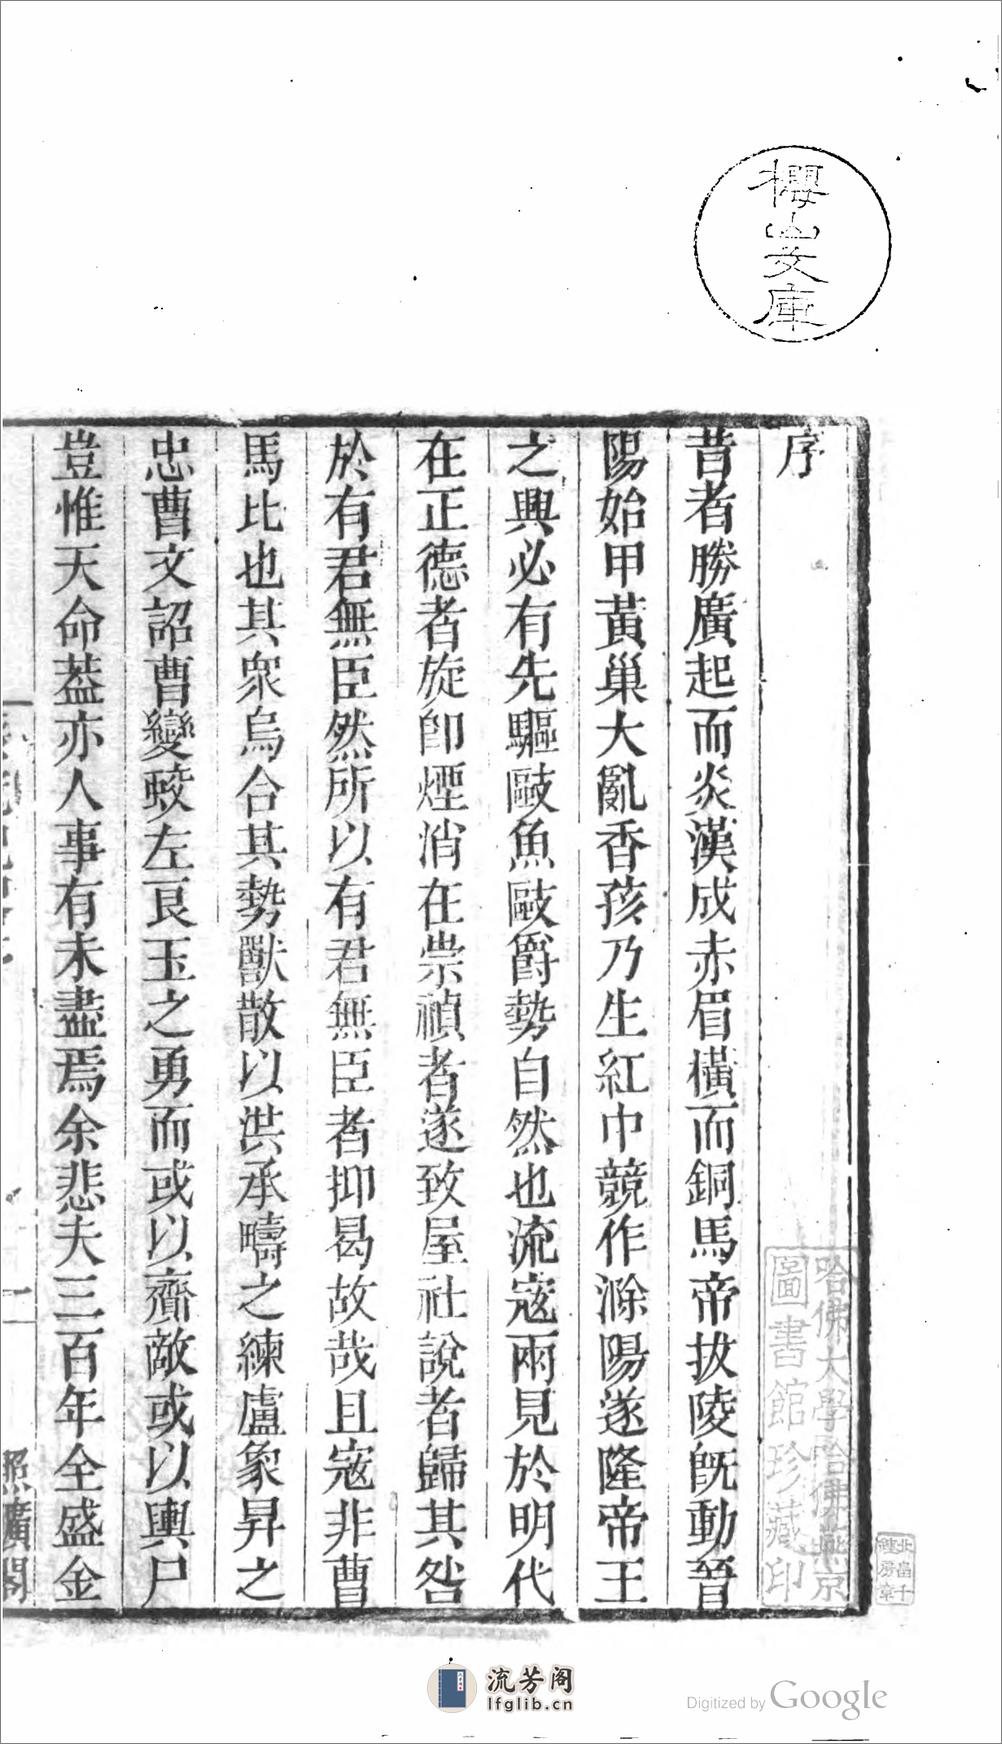 櫻山文庫
序
昔者勝廣起而炎漢成赤眉橫而銅馬帝拔陵旣動晉
陽始甲黃巢大亂香孩乃生紅巾競作滁陽遂隆帝王
之興必有先驅敺魚敺爵勢自然也流寇兩見於明代
在正德者旋卽煙消在崇禎者遂致屋社說者歸其咎
於有君無臣然所以有君無臣者抑曷故哉且寇非曹
馬比也其衆烏合其勢獸散以洪承疇之練盧象昇之
忠曹文詔曹變蛟左良玉之勇而或以齎敵或以輿尸
豈惟天命葢亦人事有未盡焉余悲夫三百年全盛金
一
照曠閣
哈佛大學哈佛燕京
圖書館珍藏印
流芳阁
lfglib.cn
Digitized by Google